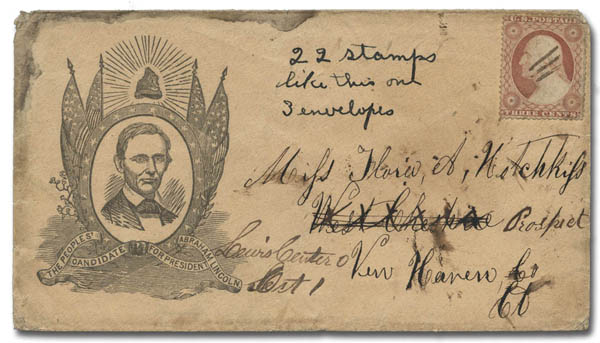 22 stamps
like this on
3 envelopes
U.S. POSTAGE
THREE CENTS
Miss A, Hotchkiss
West Cheshire Prospect
New Haven, Co
Ct
Lewis Center O
Oct 1
THE PEOPLES' CANDIDATE FOR PRESIDENT ABRAHAM LINCOLN